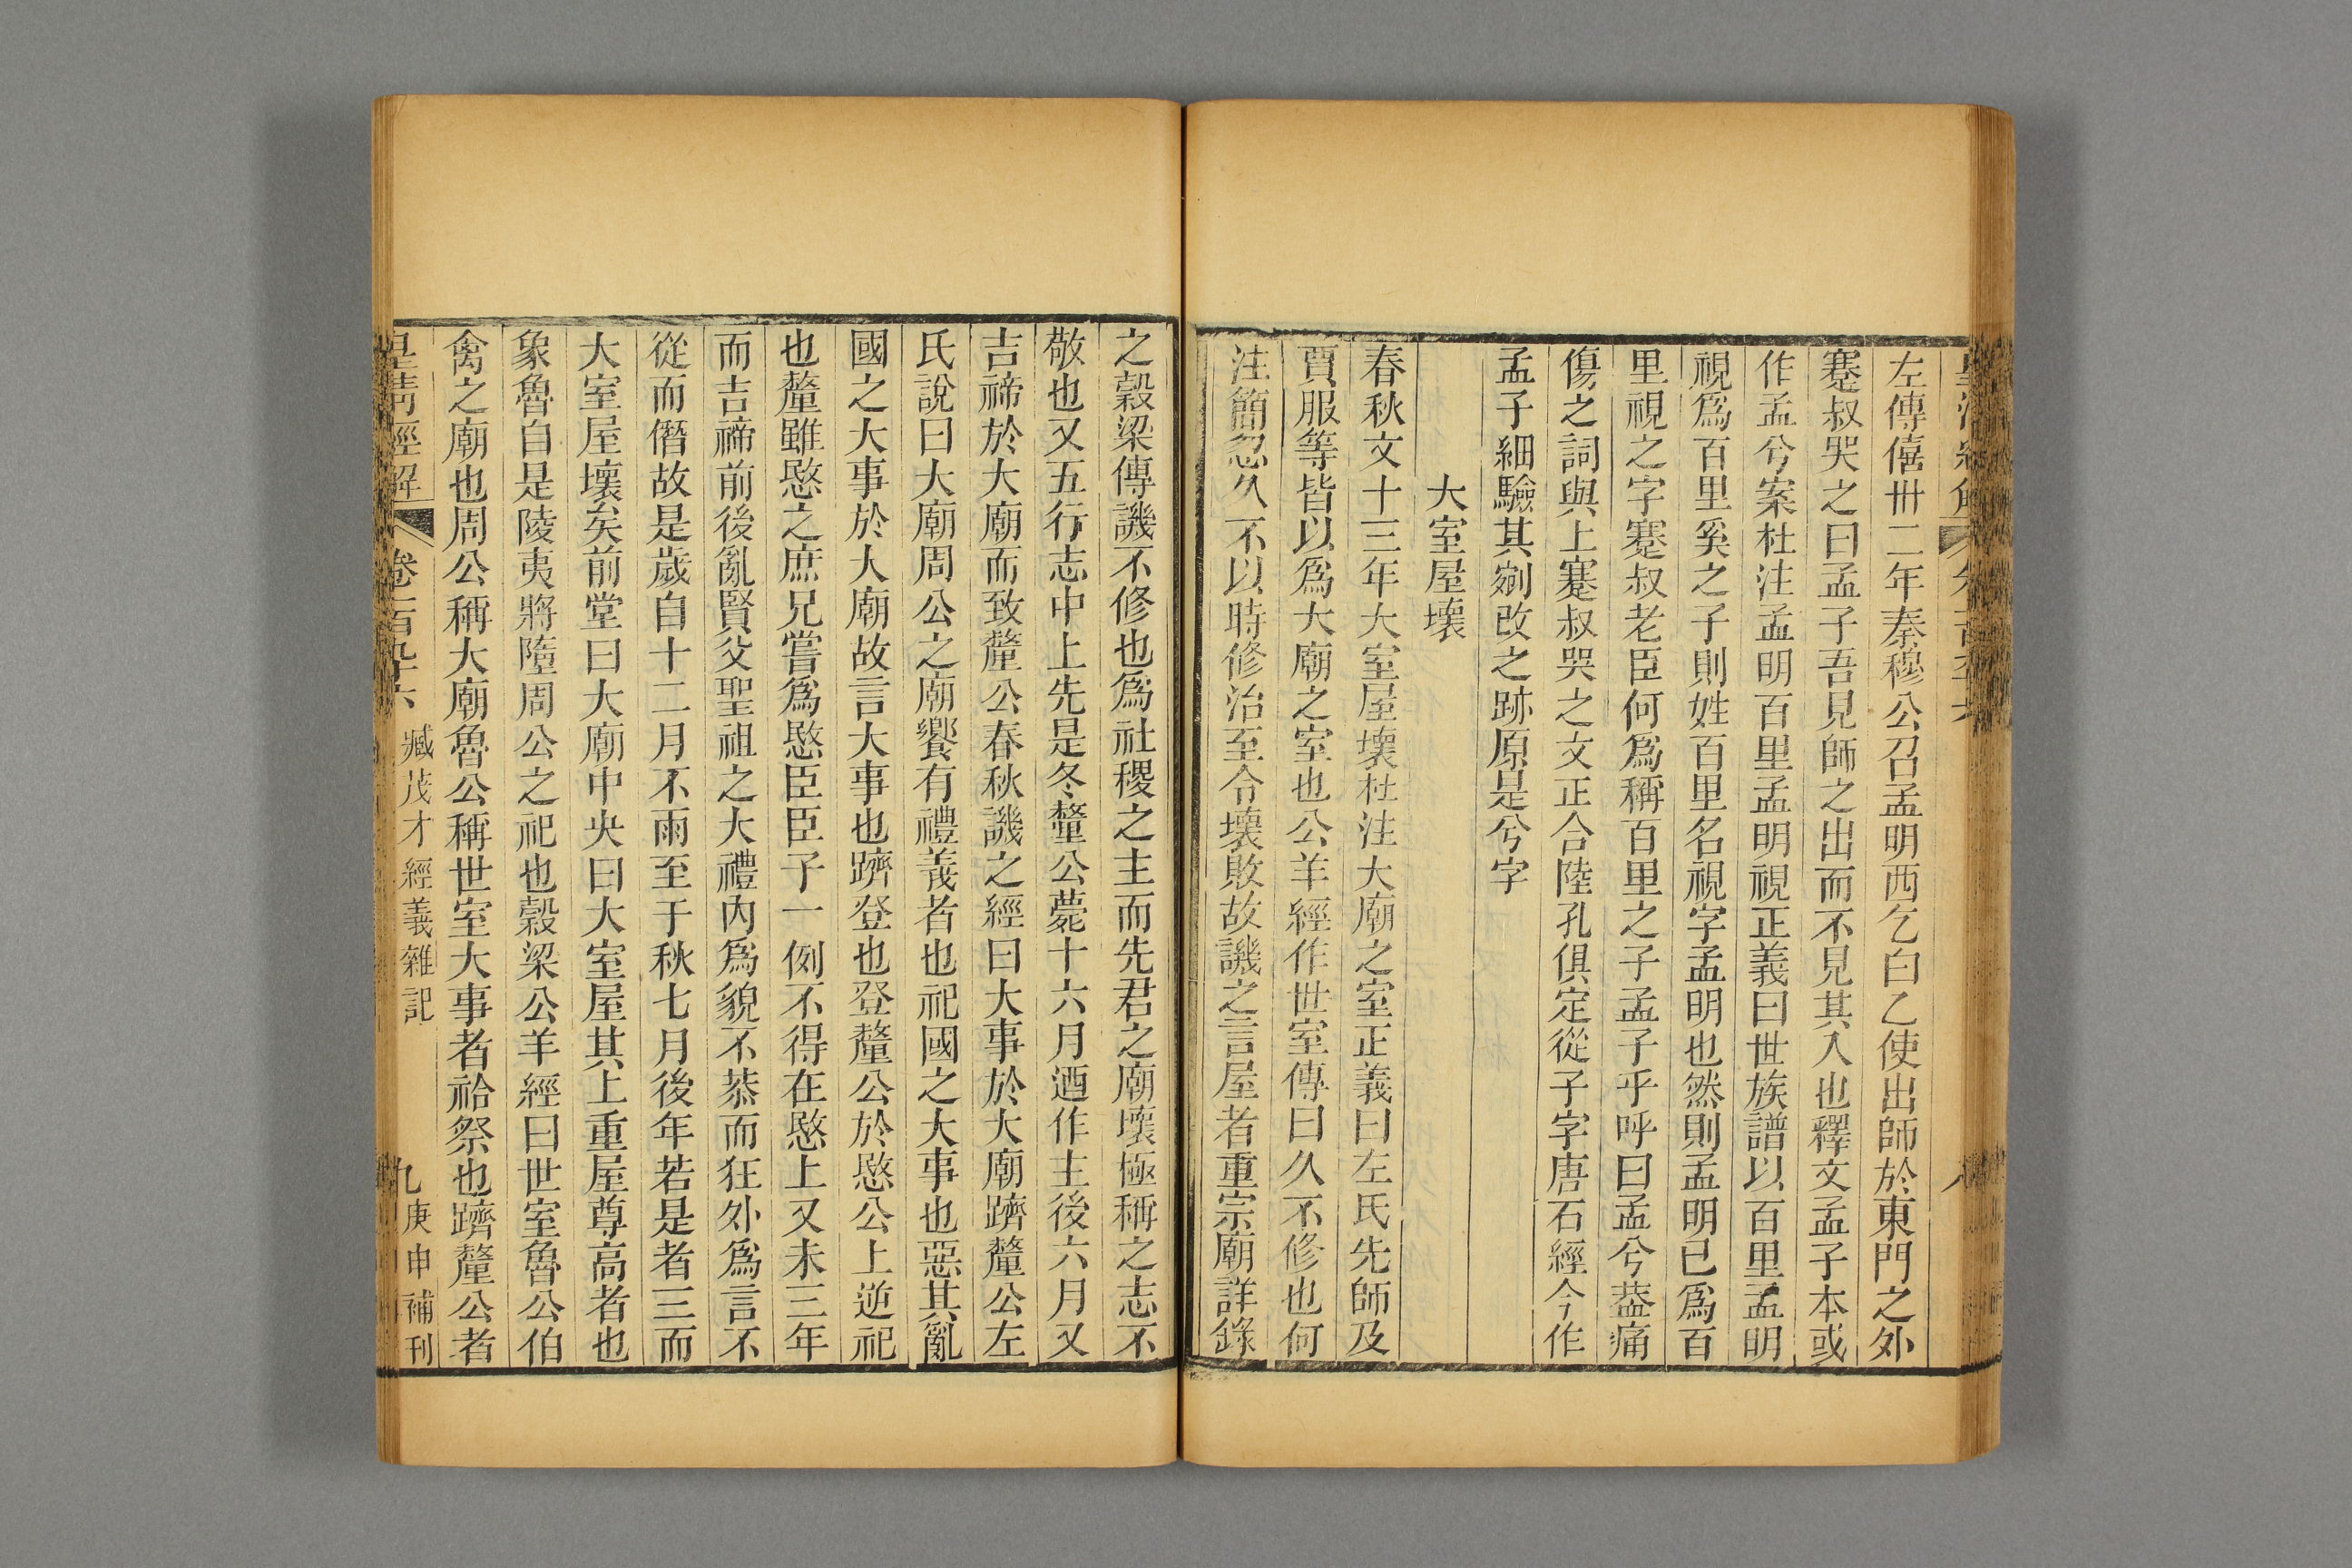 左傳僖卅二年秦穆公召孟明西乞白乙使出師於東門之外
蹇叔哭之曰孟子吾見師之出而不見其入也釋文孟子本或
作孟兮案杜注孟明百里孟明視正義曰世族譜以百里孟明
視爲百里奚之子則姓百里名視字孟明也然則孟明已爲百
里視之字蹇叔老臣何爲稱百里之子孟子乎呼曰孟兮葢痛
傷之詞與上蹇叔哭之文正合陸孔俱定從子字唐石經今作
孟子細驗其剜改之跡原是兮字
大室屋壞
春秋文十三年大室屋壞杜注大廟之室正義曰左氏先師及
賈服等皆以爲大廟之室也公羊經作世室傳曰久不修也何
注簡忽久不以時修治至令壞敗故譏之言屋者重宗廟詳錄
之穀梁傳譏不修也爲社稷之主而先君之廟壞極稱之志不
敬也又五行志中上先是冬釐公薨十六月迺作主後六月又
吉禘於大廟而致釐公春秋譏之經曰大事於大廟躋釐公左
氏說曰大廟周公之廟饗有禮義者也祀國之大事也惡其亂
國之大事於大廟故言大事也躋登也登釐公於愍公上逆祀
也釐雖愍之庶兄嘗爲愍臣臣子一例不得在愍上又未三年
而吉禘前後亂賢父聖祖之大禮內爲貌不恭而狂外爲言不
從而僭故是歲自十二月不雨至于秋七月後年若是者三而
大室屋壞矣前堂曰大廟中央曰大室屋其上重屋尊高者也
象魯自是陵夷將墮周公之祀也穀梁公羊經曰世室魯公伯
禽之廟也周公稱大廟魯公稱世室大事者祫祭也躋釐公者
皇清經解 卷二百九十六 臧茂才經義雜記 九 庚申補刊